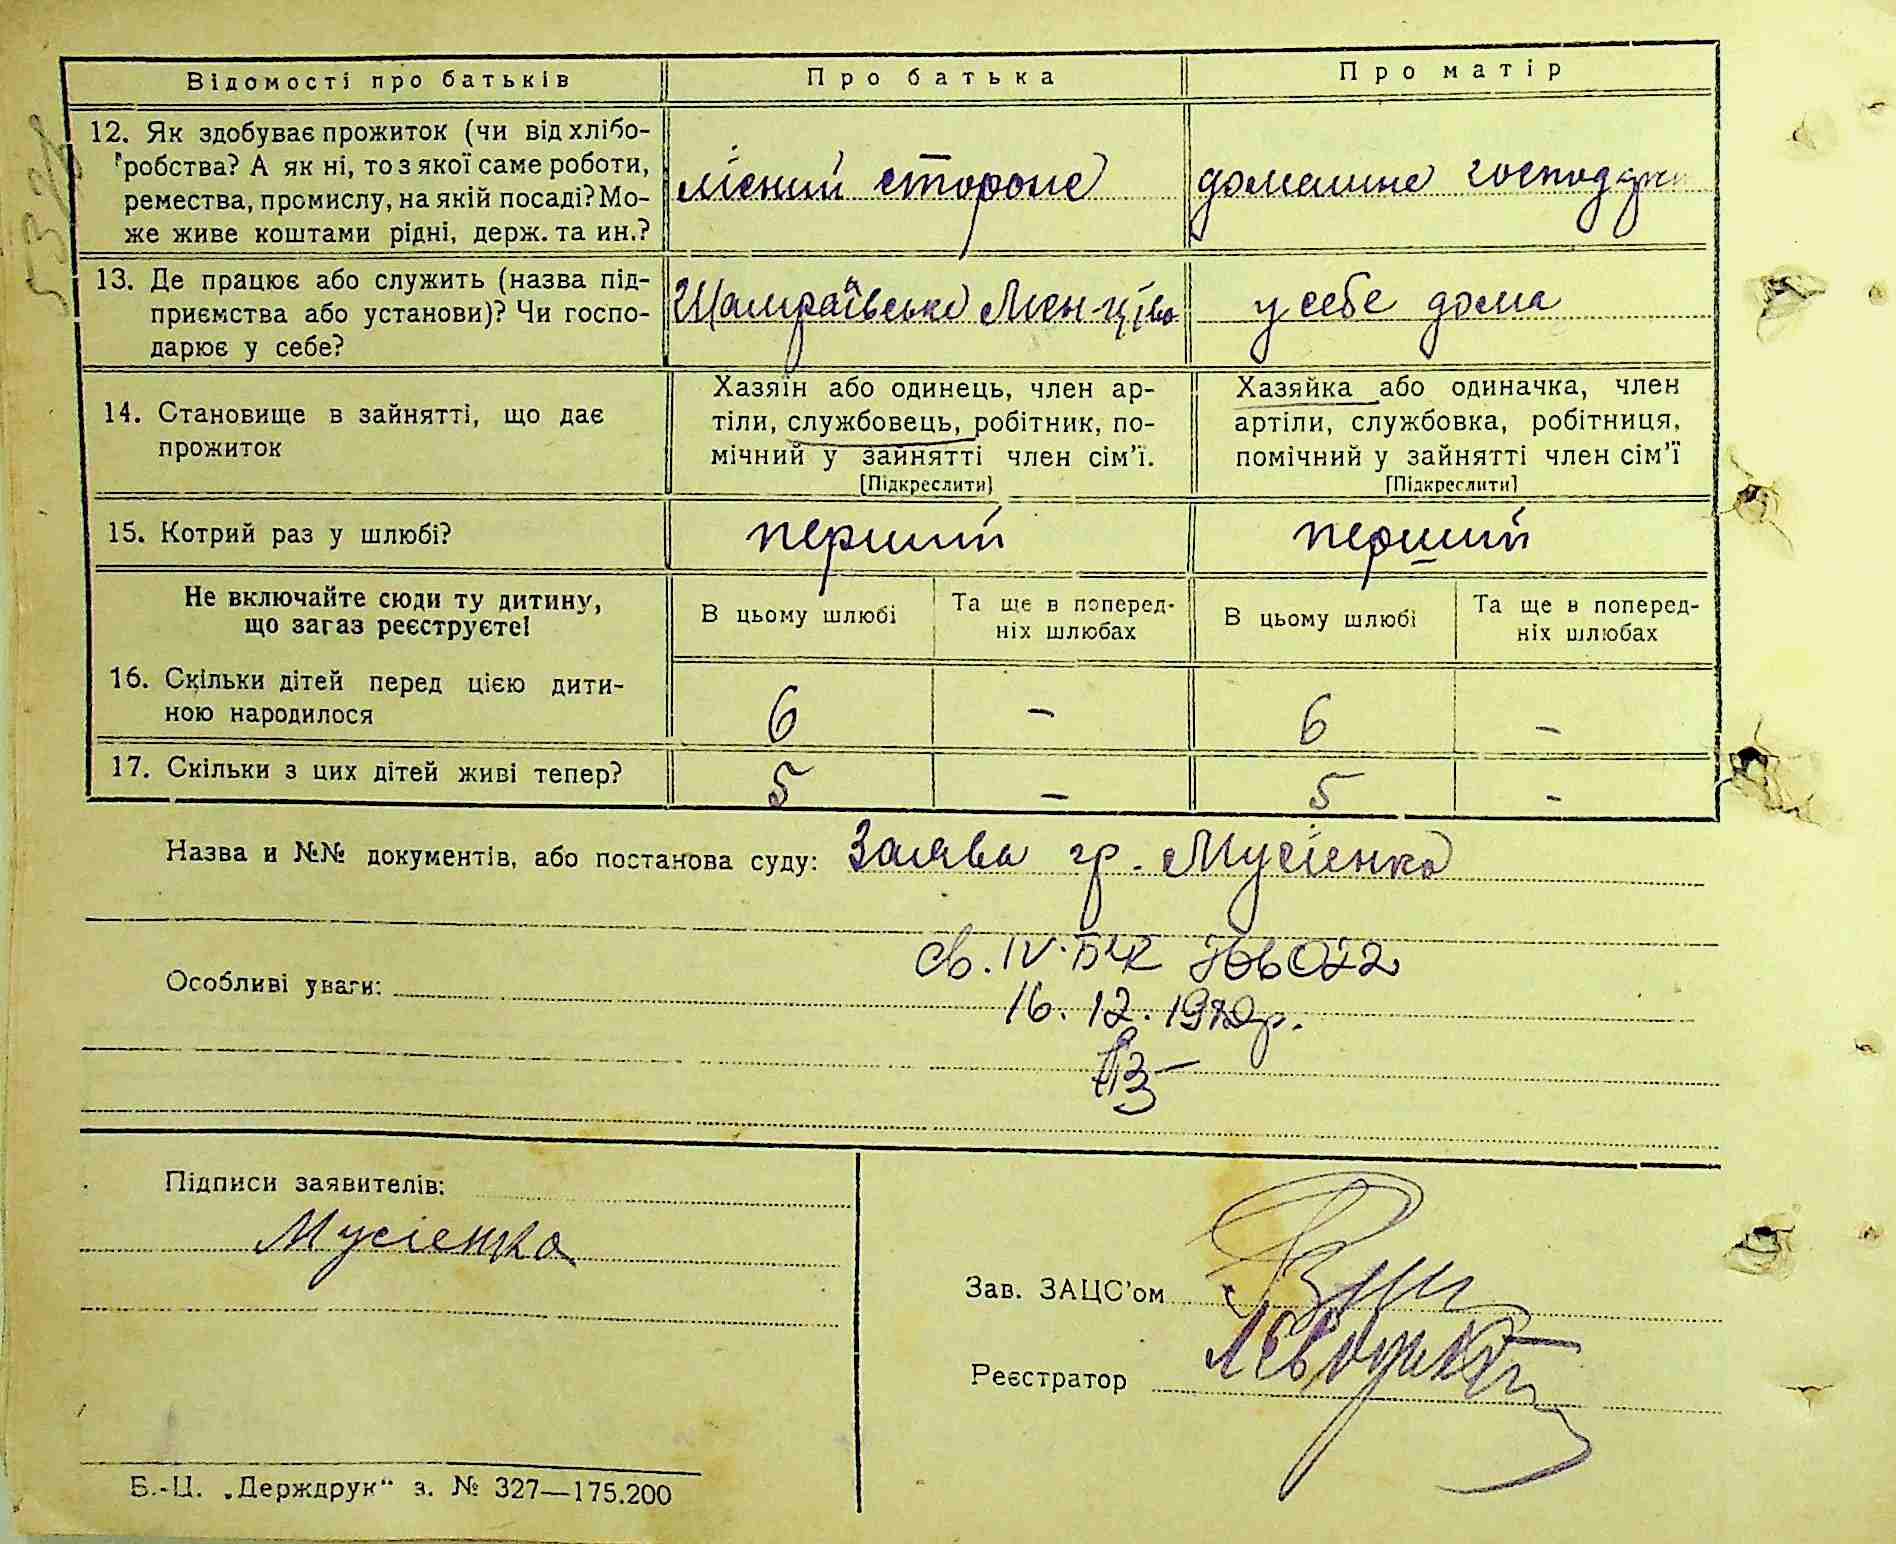 Відомості про батьків
Про батька
Про матір
12. Як здобуває прожиток (чи від хлібо-
робства? А як ні, то з якої саме роботи,
ремества, промислу, на якій посаді? Мо-
же живе коштами рідні, держ. та ин.?
лісний стороже
домашнє господар
13. Де працює або служить (назва під-
приємства або установи)? Чи госпо-
дарює у себе?
Шамраївське
у себе дома
14. Становище в зайнятті, що дає
прожиток
Хазяїн або одинець, член ар-
тіли, службовець, робітник, по-
мічний у зайнятті член сім'ї.
[Підкреслити]
Хазяйка або одиначка, член
артіли, службовка, робітниця,
помічний у зайнятті член сім'ї
[Підкреслити]
15. Котрий раз у шлюбі?
перший
перший
Не включайте сюди ту дитину,
що загаз реєструєте!
В цьому шлюбі
Та ще в поперед-
ніх шлюбах
В цьому шлюбі
Та ще в поперед-
ніх шлюбах
16. Скільки дітей перед цією дити-
ною народилося
6
-
6
-
17. Скільки з цих дітей живі тепер?
5
-
5
-
Назва и №№ документів, або постанова суду: Заява гр. Мусієнко
св. IV-БЧК
Особливі уваги:
16.12.1972р.
Підписи заявителів:
Мусієнко
Зав. ЗАЦС'ом
Реєстратор
Б.-Ц. „Держдрук" з. № 327—175.200